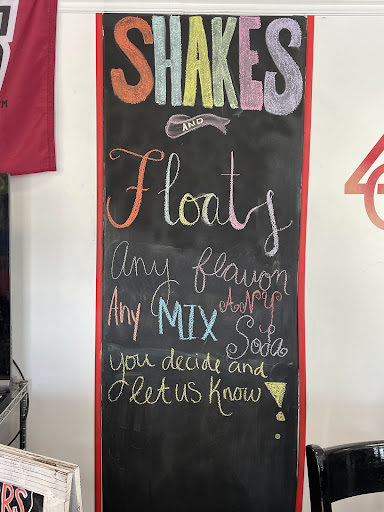 SHAKES
AND
Floats
any flavor
Any MIX ANY
Soda
you decide and
let us know!